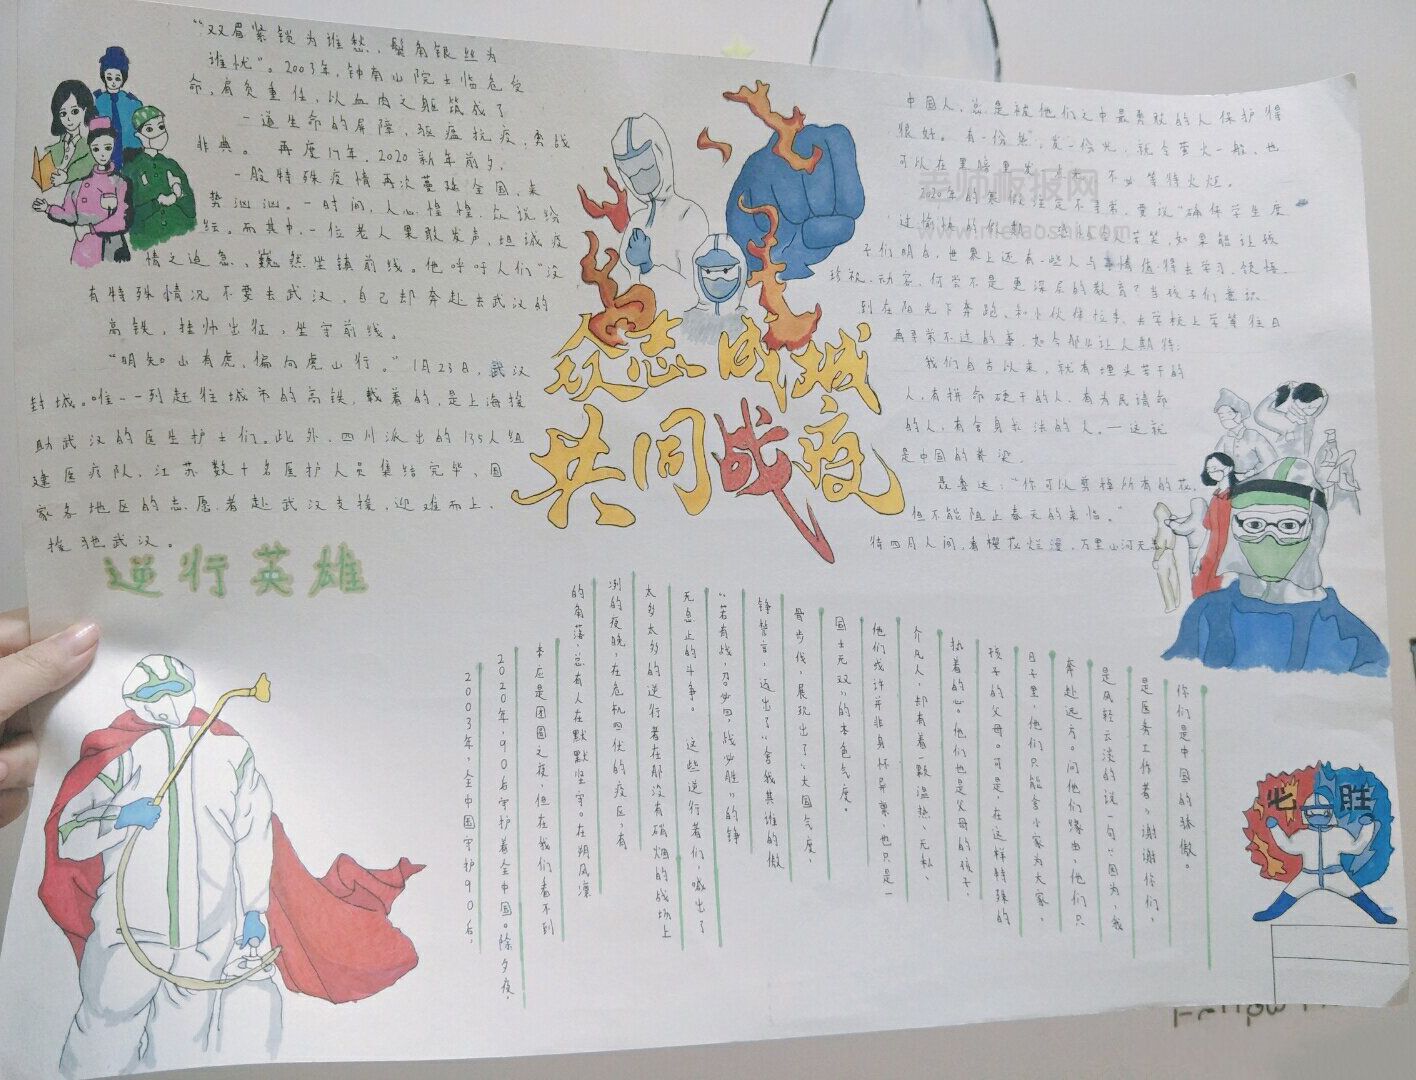 “双眉紧锁为谁愁，鬓角银丝为
谁忧”。2003年，钟南山院士临危受
命，肩负重任，以血肉之躯筑成了
一道生命的屏障，驱瘟抗疫，勇战
非典。 再度17年，2020新年前夕，
一股特殊疫情再次蔓延全国，来
势汹汹。一时间，人心惶惶，众说纷
纭。而其中，一位老人果敢发声，坦诚疫
情之迫急，巍然坐镇前线。他呼吁人们“没
有特殊情况不要去武汉，自己却奔赴去武汉的
高铁，挂帅出征，坐守前线。
“明知山有虎，偏向虎山行。”1月23日，武汉
封城。唯一一列赶往城市的高铁，载着的，是上海援
助武汉的医生护士们。此外，四川派出的135人组
建医疗队，江苏数十名医护人员集结完毕，国
家各地区的志愿者赴武汉支援，迎难而上，
援驰武汉。
逆行英雄
众志成城
共同战疫
中国人，总是被他们之中最勇敢的人保护得
很好。 有一份热，发一份光，就令萤火一般，也
可以在黑暗里发一点光，不必等待炬火。
老师板报网
2020年的寒假注定不寻常，要议“确保学生度
过愉快的假期”
www.meiaoshi.com
苦笑，如果能让孩
子们明白，世界上还有一些人与事情值得去学习、领悟、
珍视、动容，何尝不是更深层的教育？当孩子们意识
到在阳光下奔跑、和小伙伴拉手、去学校上学等往日
再寻常不过的事，如今那么让人期待：
我们自古以来，就有埋头苦干的
人，有拼命硬干的人，有为民请命
的人，有舍身求法的人。一这就
是中国的脊梁。
聂鲁达：“你可以剪掉所有的花，
但不能阻止春天的来临。”
待四月人间，看樱花烂漫，万里山河无恙
2003年，全中国守护90后，
2020年，90后守护着全中国。除夕夜，
本应是团圆之夜，但在我们看不到
的角落，总有人在默默坚守。在朔风凛
冽的夜晚，在危机四伏的疫区，有
太多太多的逆行者在那没有硝烟的战场上
无息止的斗争。 这些逆行者们喊出了
“若有战，召必回，战必胜”的铮
铮誓言，迈出了“舍我其谁的傲
骨步伐，展现出了“大国气度，
国士无双”的本色气度。
他们或许并非身怀异禀，也只是一
介凡人，却有着一颗温热、无私、
执着的心。他们也是父母的孩子，
孩子的父母。可是，在这样特殊的
日子里，他们只能舍小家为大家，
奔赴远方。问他们缘由，他们只
是风轻云淡的说一句“因为，我
是医务工作者”谢谢你们，
你们是中国的骄傲。
必胜